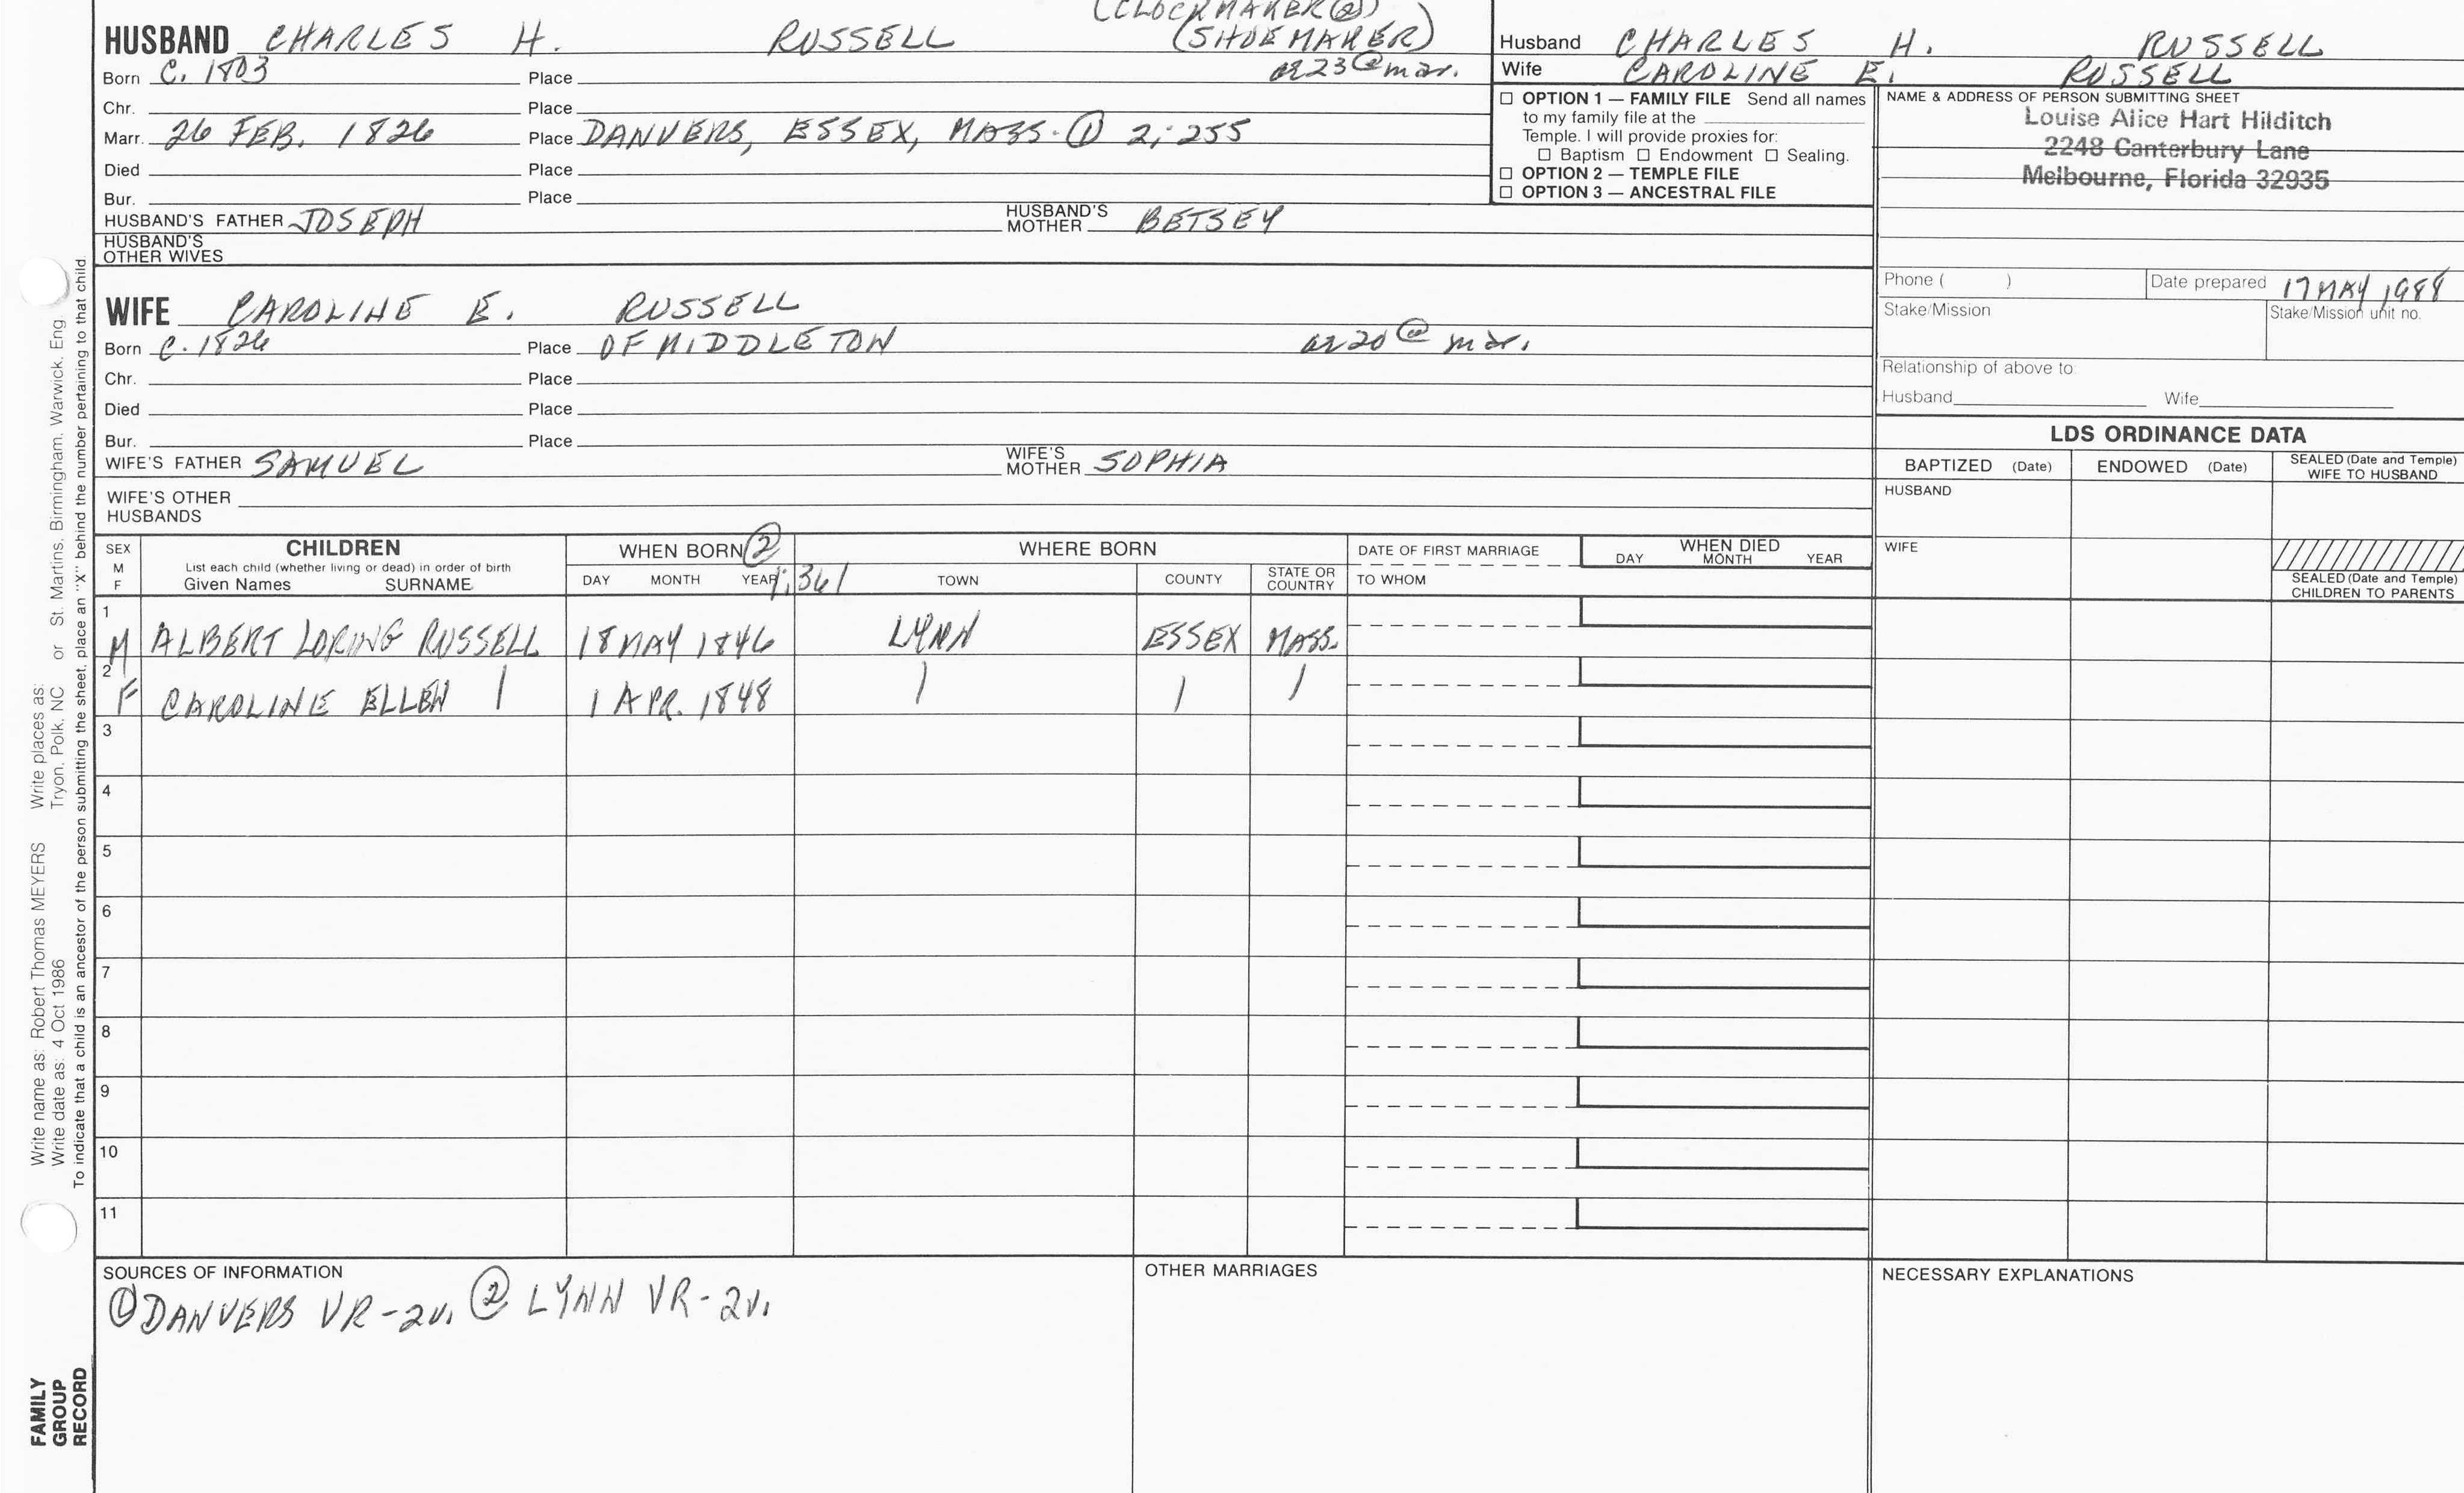 (CLOCKMAKER②)
HUSBAND CHARLES H. RUSSELL (SHOEMAKER)
Born C. 1803 Place ae 23 @ mar.
Chr. Place
Marr. 26 FEB. 1826 Place DANVERS, ESSEX, MASS. ① 2; 255
Died Place
Bur. Place
HUSBAND'S FATHER JOSEPH HUSBAND'S MOTHER BETSEY
HUSBAND'S
OTHER WIVES
Husband CHARLES H. RUSSELL
Wife CAROLINE E. RUSSELL
☐ OPTION 1 — FAMILY FILE Send all names
to my family file at the
Temple. I will provide proxies for:
☐ Baptism ☐ Endowment ☐ Sealing.
☐ OPTION 2 — TEMPLE FILE
☐ OPTION 3 — ANCESTRAL FILE
NAME & ADDRESS OF PERSON SUBMITTING SHEET
Louise Alice Hart Hilditch
2248 Canterbury Lane
Melbourne, Florida 32935
Phone ( ) Date prepared 17 MAY 1988
Stake/Mission Stake/Mission unit no.
Relationship of above to:
Husband Wife
WIFE CAROLINE E. RUSSELL
Born C. 1826 Place OF MIDDLETON ae 20 @ mar.
Chr. Place
Died Place
Bur. Place
WIFE'S FATHER SAMUEL WIFE'S MOTHER SOPHIA
WIFE'S OTHER
HUSBANDS
LDS ORDINANCE DATA
BAPTIZED (Date) ENDOWED (Date) SEALED (Date and Temple) WIFE TO HUSBAND
HUSBAND
WIFE
SEALED (Date and Temple)
CHILDREN TO PARENTS
SEX M F
CHILDREN
List each child (whether living or dead) in order of birth
Given Names SURNAME
WHEN BORN ②
DAY MONTH YEAR 1; 361
WHERE BORN
TOWN COUNTY STATE OR COUNTRY
DATE OF FIRST MARRIAGE
TO WHOM
WHEN DIED
DAY MONTH YEAR
1 M ALBERT LORING RUSSELL 18 MAY 1846 LYNN ESSEX MASS.
2 F CAROLINE ELLEN | 1 APR. 1848 | | |
3
4
5
6
7
8
9
10
11
SOURCES OF INFORMATION
① DANVERS VR-2v. ② LYNN VR-2v.
OTHER MARRIAGES
NECESSARY EXPLANATIONS
Write name as: Robert Thomas MEYERS Write places as:
Write date as: 4 Oct 1986 Tryon, Polk, NC or St. Martins, Birmingham, Warwick, Eng.
To indicate that a child is an ancestor of the person submitting the sheet, place an "X" behind the number pertaining to that child
FAMILY
GROUP
RECORD